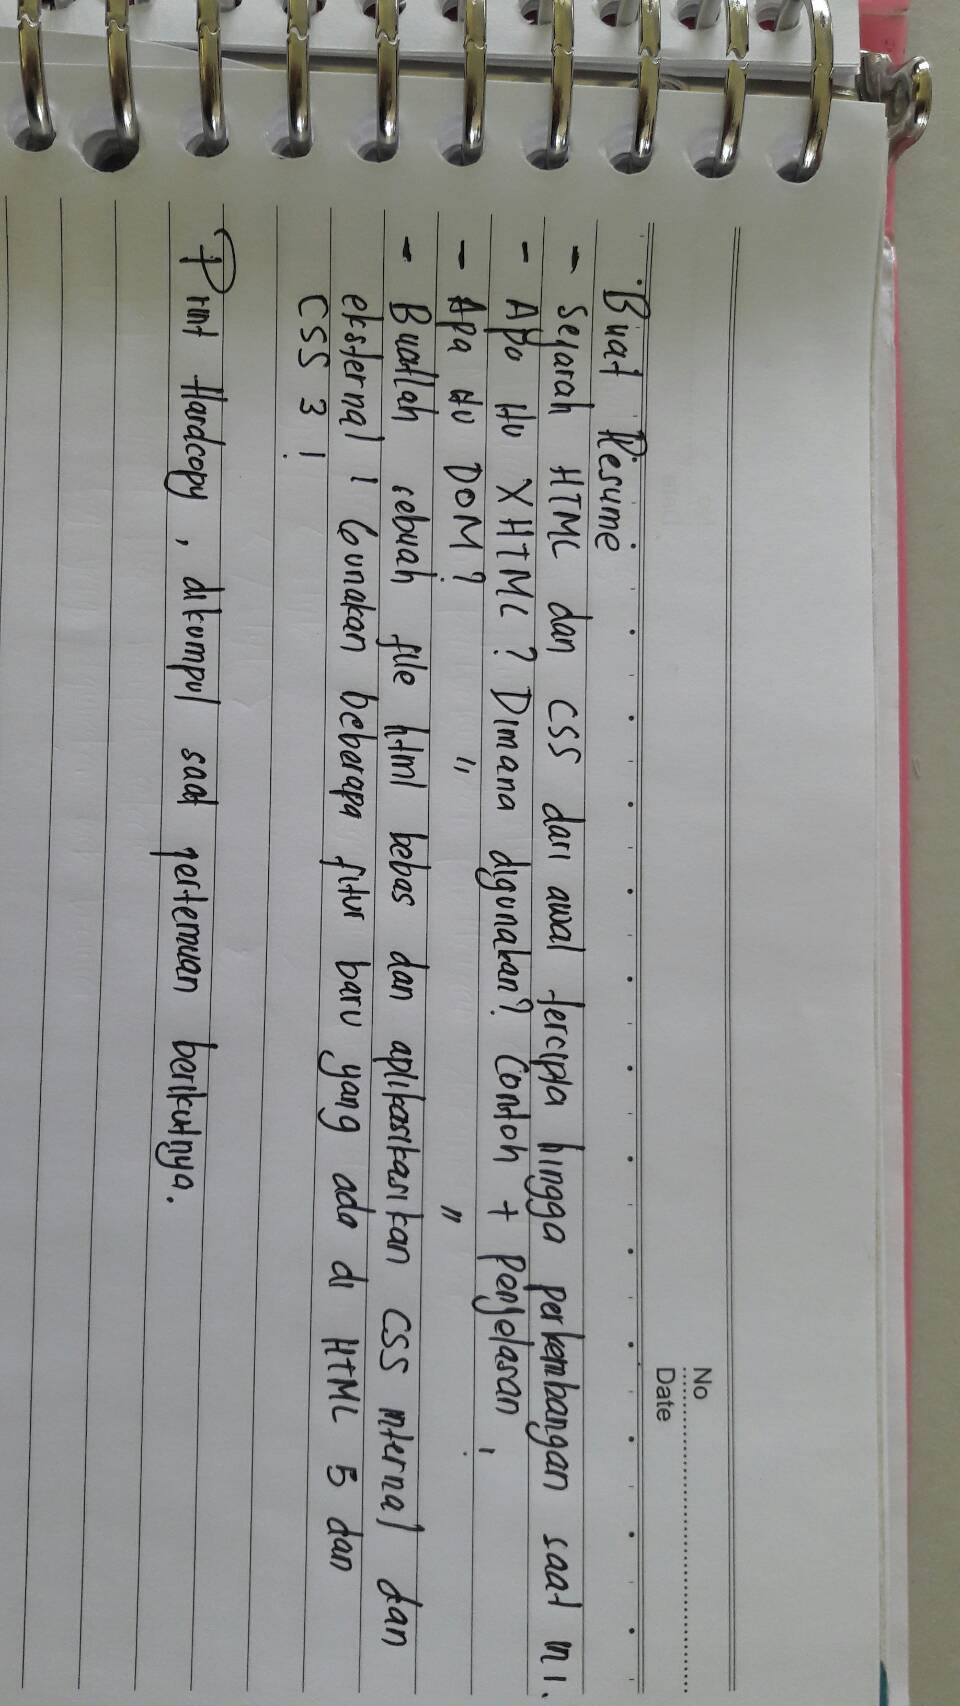 No
Date
Buat Resume
- Sejarah HTML dan CSS dari awal tercipta hingga perkembangan saat ini.
- Apa itu XHTML ? Dimana digunakan? Contoh + Penjelasan !
- Apa itu DOM ? " "
- Buatlah sebuah file html bebas dan aplikasikasikan CSS internal dan
eksternal ! Gunakan beberapa fitur baru yang ada di HTML 5 dan
CSS 3 !
Print Hardcopy, dikumpul saat pertemuan berikutnya.